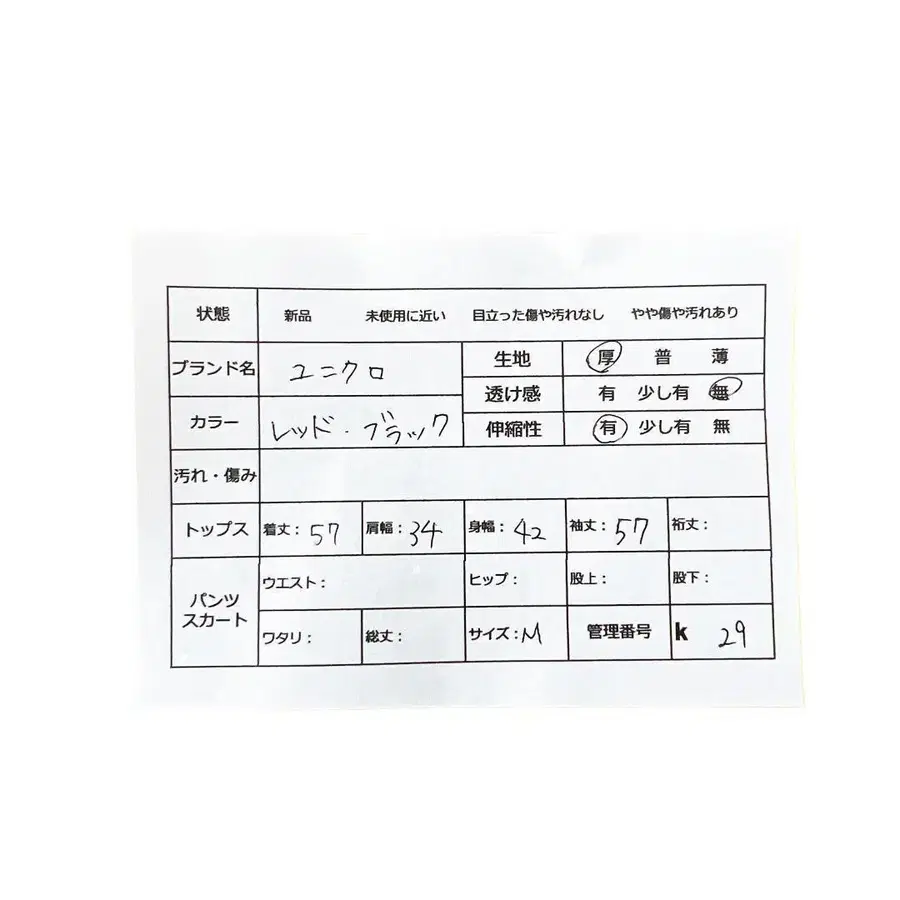 状態 新品 未使用に近い 目立った傷や汚れなし やや傷や汚れあり
ブランド名 ユニクロ 生地 厚 普 薄
透け感 有 少し有 無
カラー レッド・ブラック 伸縮性 有 少し有 無
汚れ・傷み
トップス 着丈：57 肩幅：34 身幅：42 袖丈：57 裄丈：
パンツ スカート ウエスト： ヒップ： 股上： 股下：
ワタリ： 総丈： サイズ：M 管理番号 k 29